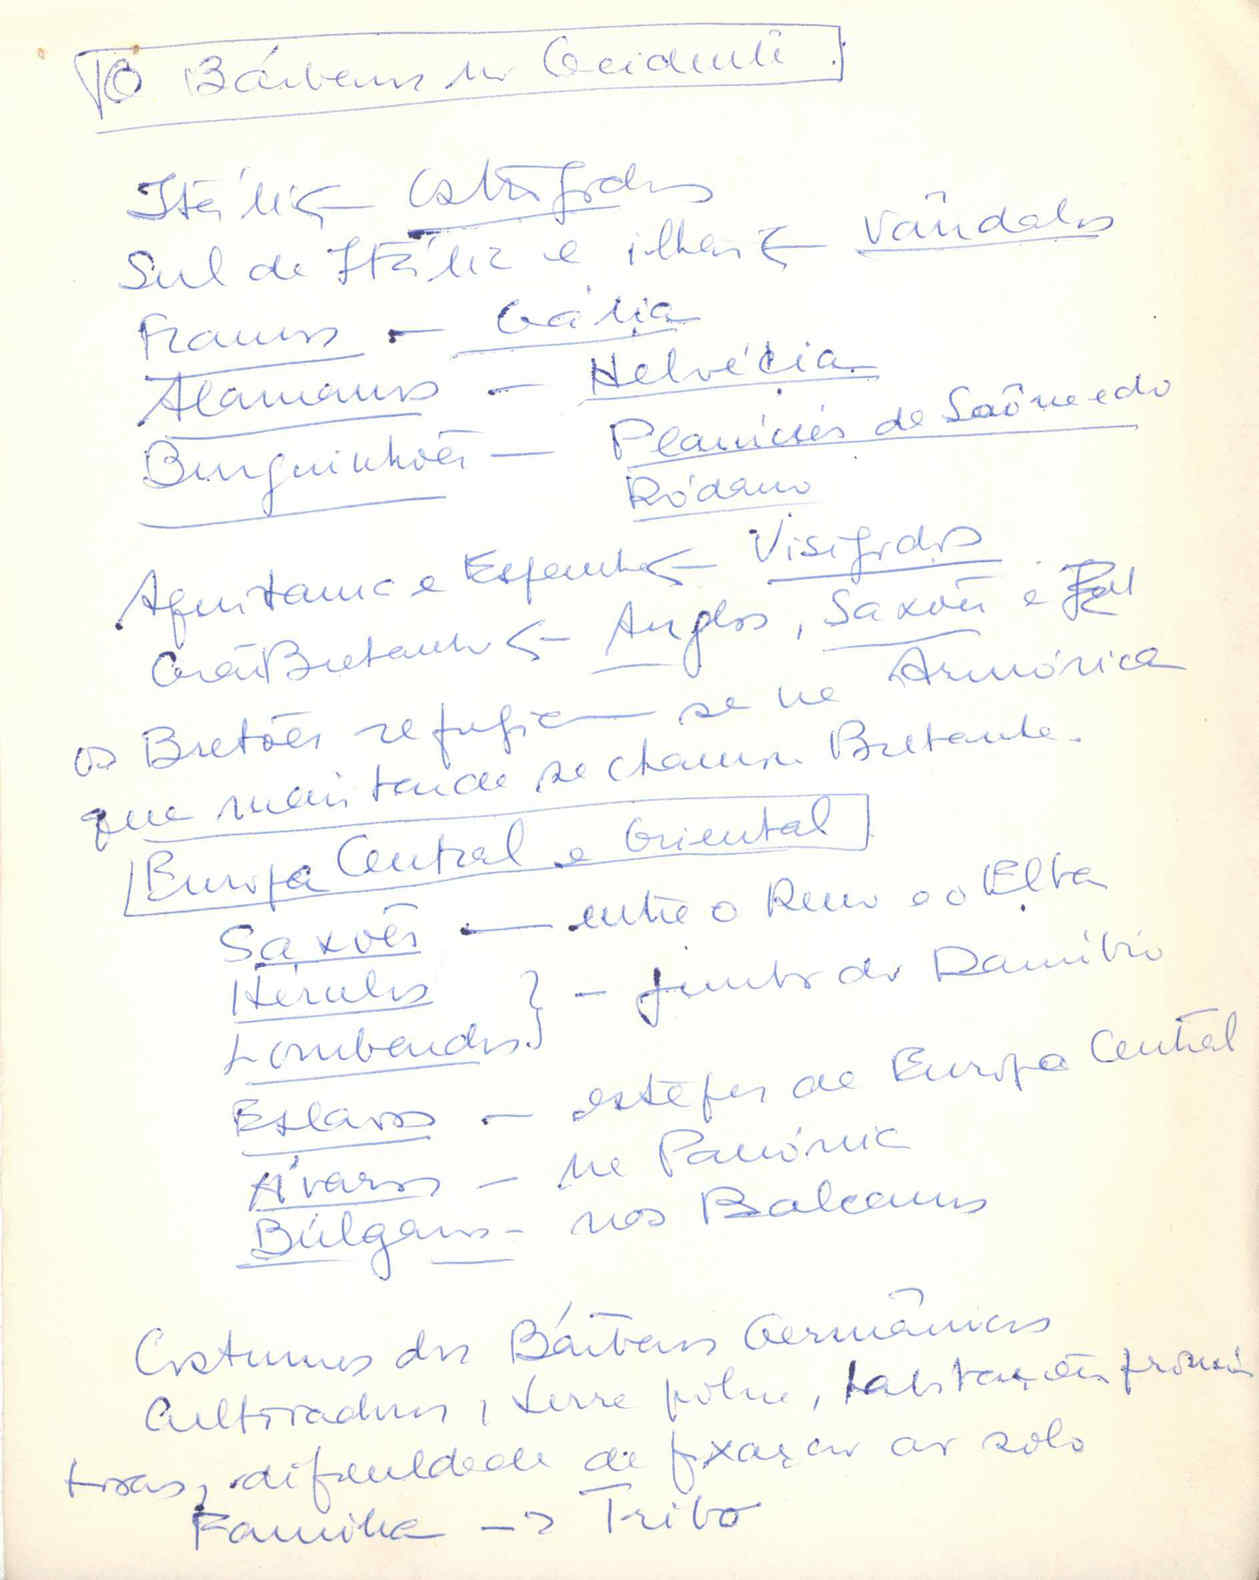 Bárbaros no Ocidente.
Itália — Ostrogodos
Sul da Itália e ilhas — Vândalos
Francos — Gália
Alamanos — Helvécia
Burguinhões — Planícies de Saône e do
Ródano
Aquitania e Espanha — Visigodos
Grã Bretanha — Anglos, Saxões e
os Bretões refugiam-se na Armórica
que mais tarde se chamou Bretanha.
Europa Central e Oriental
Saxões — entre o Reno e o Elba
Hérulos
Lombardos } — junto do Danúbio
Eslavos — estepes da Europa Central
Ávaros — na Panónia
Búlgaros — nos Balcans
Costumes dos Bárbaros Germânicos
Cultivadores, terra pobre, habitações
toscas, dificuldade de fixação ao solo
Familia —> Tribo